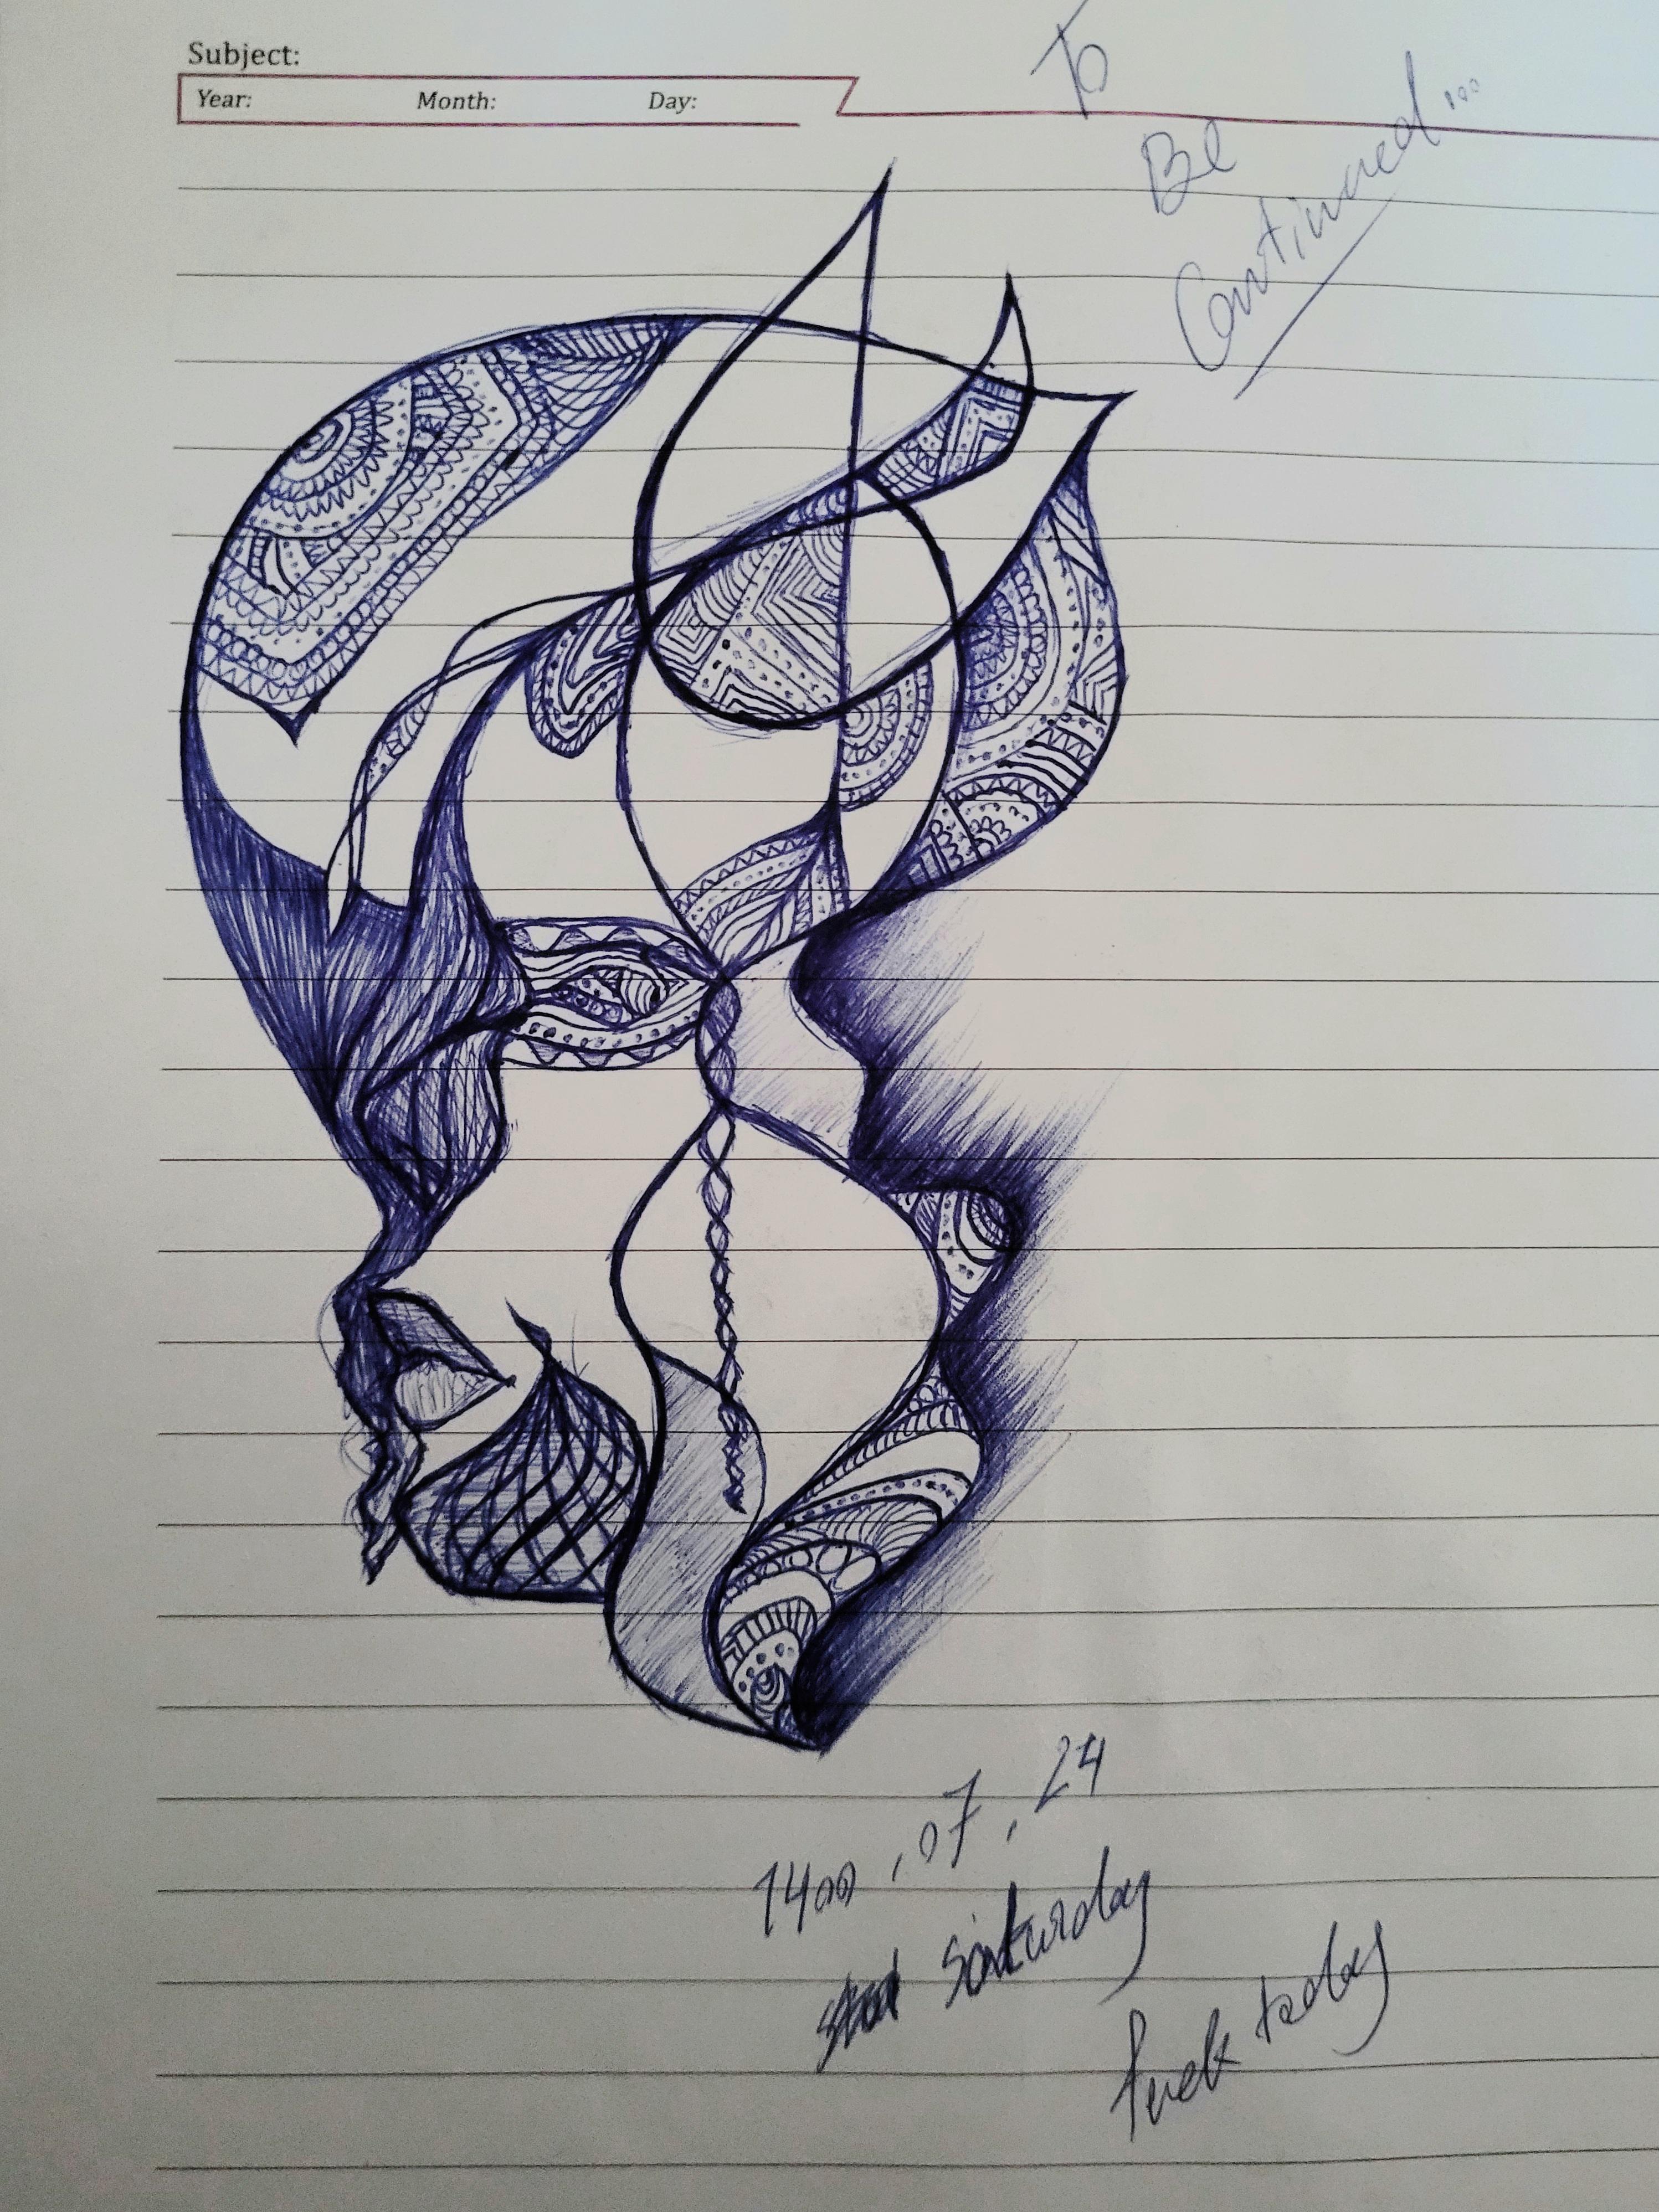 Subject:
Year: Month: Day:
To
Be
Continued...
1400,07,24
saturday
fuck today